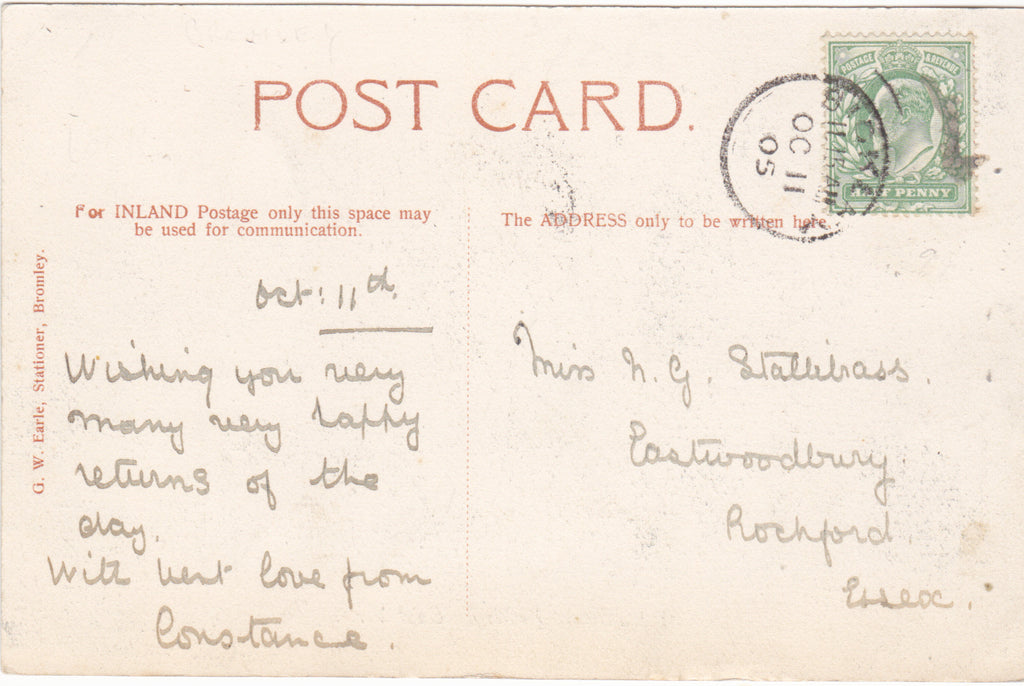 POST CARD.
POSTAGE & REVENUE
HALF PENNY
OC 11
05
For INLAND Postage only this space may
be used for communication.
The ADDRESS only to be written here.
G. W. Earle, Stationer, Bromley.
Oct: 11th.
Wishing you very
many very happy
returns of the
day.
With best love from
Constance.
Miss N. G. Stallibrass.
Eastwoodbury
Rochford
Essex.